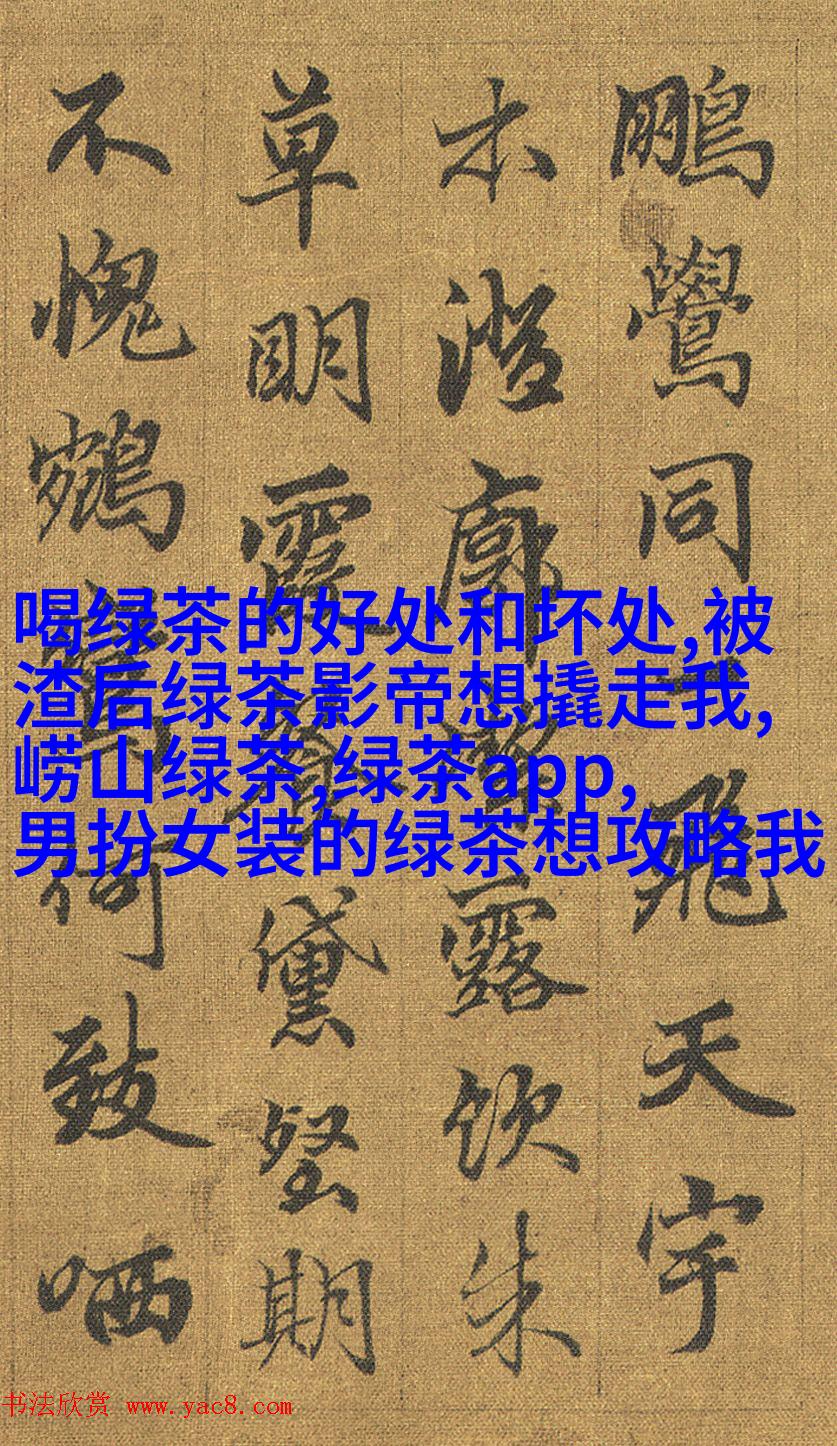 鵬鷽同一飛天宇
本澄廓露饮朱
草明霞餐黛堅期
不愧鵷鸞何致哂
喝绿茶的好处和坏处,被
渣后绿茶影帝想撬走我,
崂山绿茶,绿茶app,
男扮女装的绿茶想攻略我
书法欣赏 www.yac8.com